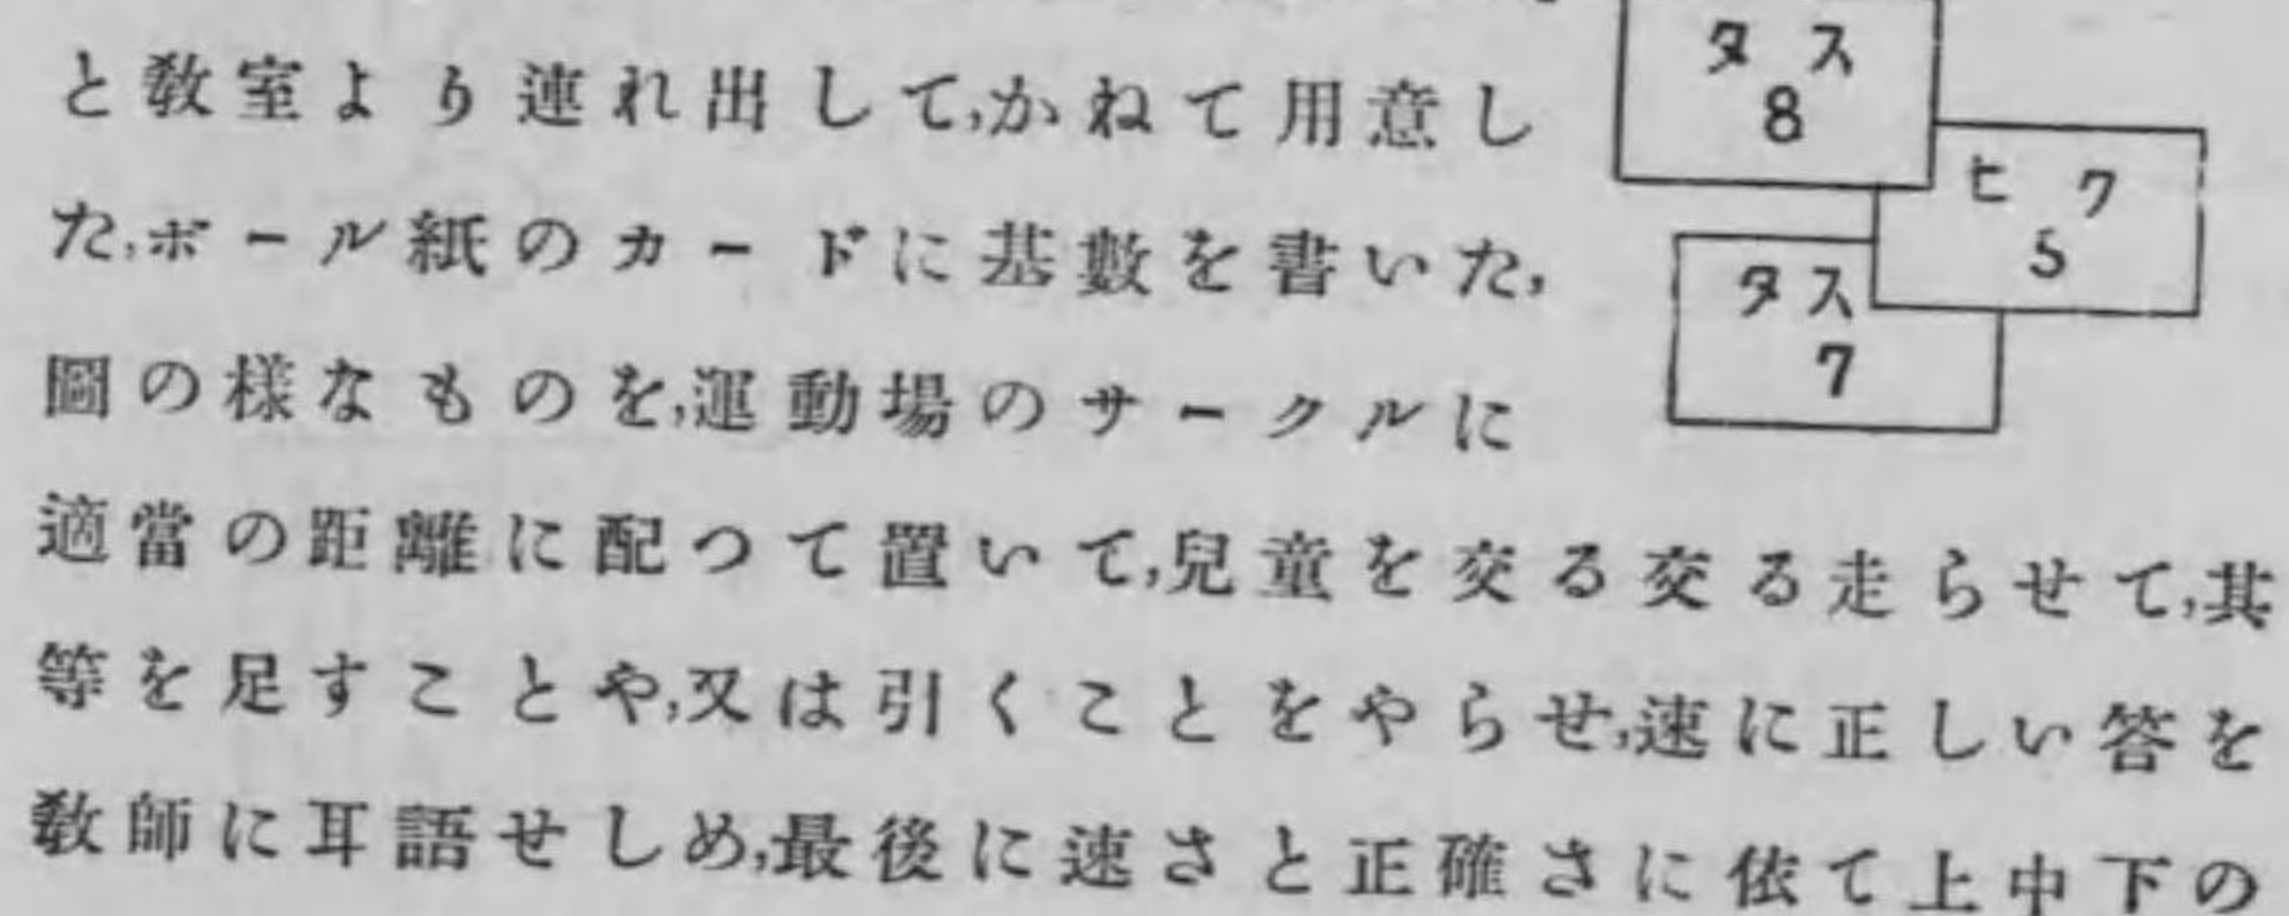 と教室より連れ出して,かねて用意し
た,ボール紙のカードに基數を書いた,
圖の様なものを,運動場のサークルに
適當の距離に配つて置いて,兒童を交る交る走らせて,其
等を足すことや,又は引くことをやらせ,速に正しい答を
教師に耳語せしめ,最後に速さと正確さに依て上中下の
タス
8
ヒク
5
タス
7